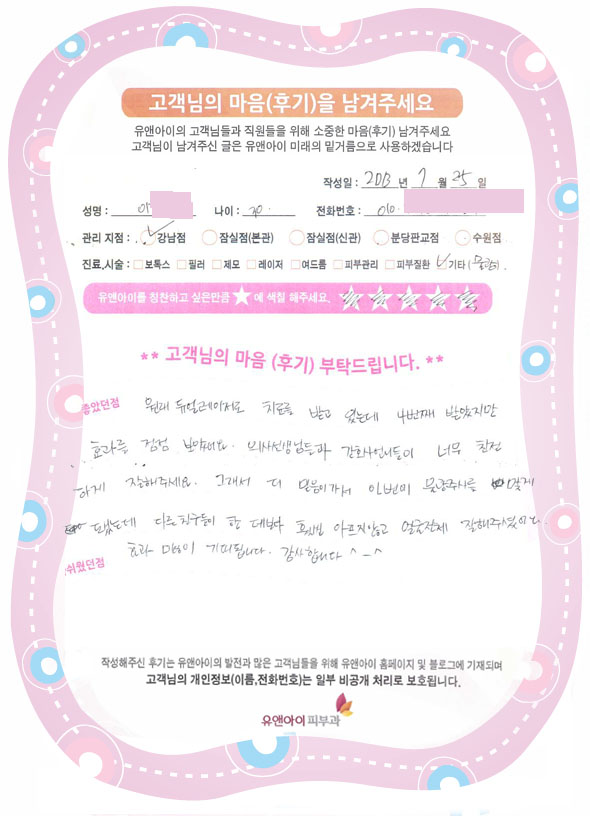 고객님의 마음(후기)을 남겨주세요
유앤아이의 고객님들과 직원들을 위해 소중한 마음(후기) 남겨주세요
고객님이 남겨주신 글은 유앤아이 미래의 밑거름으로 사용하겠습니다
작성일 : 2013 년 7 월 25 일
성명 : 이 나이 : 20. 전화번호 : 010.
관리 지점 : 강남점 잠실점(본관) 잠실점(신관) 분당판교점 수원점
진료,시술 : 보톡스 필러 제모 레이저 여드름 피부관리 피부질환 기타 (물광).
유앤아이를 칭찬하고 싶은만큼 ★ 에 색칠 해주세요.
** 고객님의 마음 (후기) 부탁드립니다. **
좋았던점 원래 듀얼레이저로 치료를 받고 있는데 4번째 받았지만
효과를 점점 보았어요. 의사선생님들과 간호사언니들이 너무 친절
하게 잘해주세요. 그래서 더 믿음이가서 이번에 물광주사를 맞게
됐는데 다른친구들이 한 데보다 훨씬 아프지않고 얼굴전체 잘해주셨어요.
효과 많이 기대됩니다. 감사합니다 ^_^
쉬웠던점
작성해주신 후기는 유앤아이의 발전과 많은 고객님들을 위해 유앤아이 홈페이지 및 블로그에 기재되며
고객님의 개인정보(이름,전화번호)는 일부 비공개 처리로 보호됩니다.
유앤아이피부과